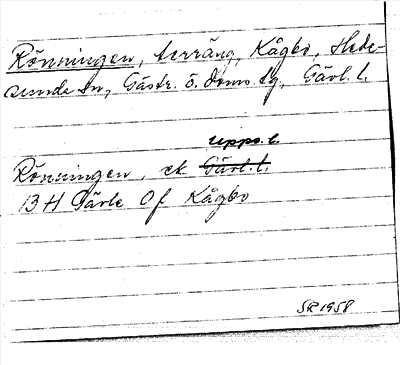 Rönningen, terräng, Kågbo, Hede-
sunda sn, Gästr. ö. doms. tg, Gävl. l.
Upps. l.
Rönningen, ek Gävl. l.
13 H Gävle 0 f Kågbo
SR 1958